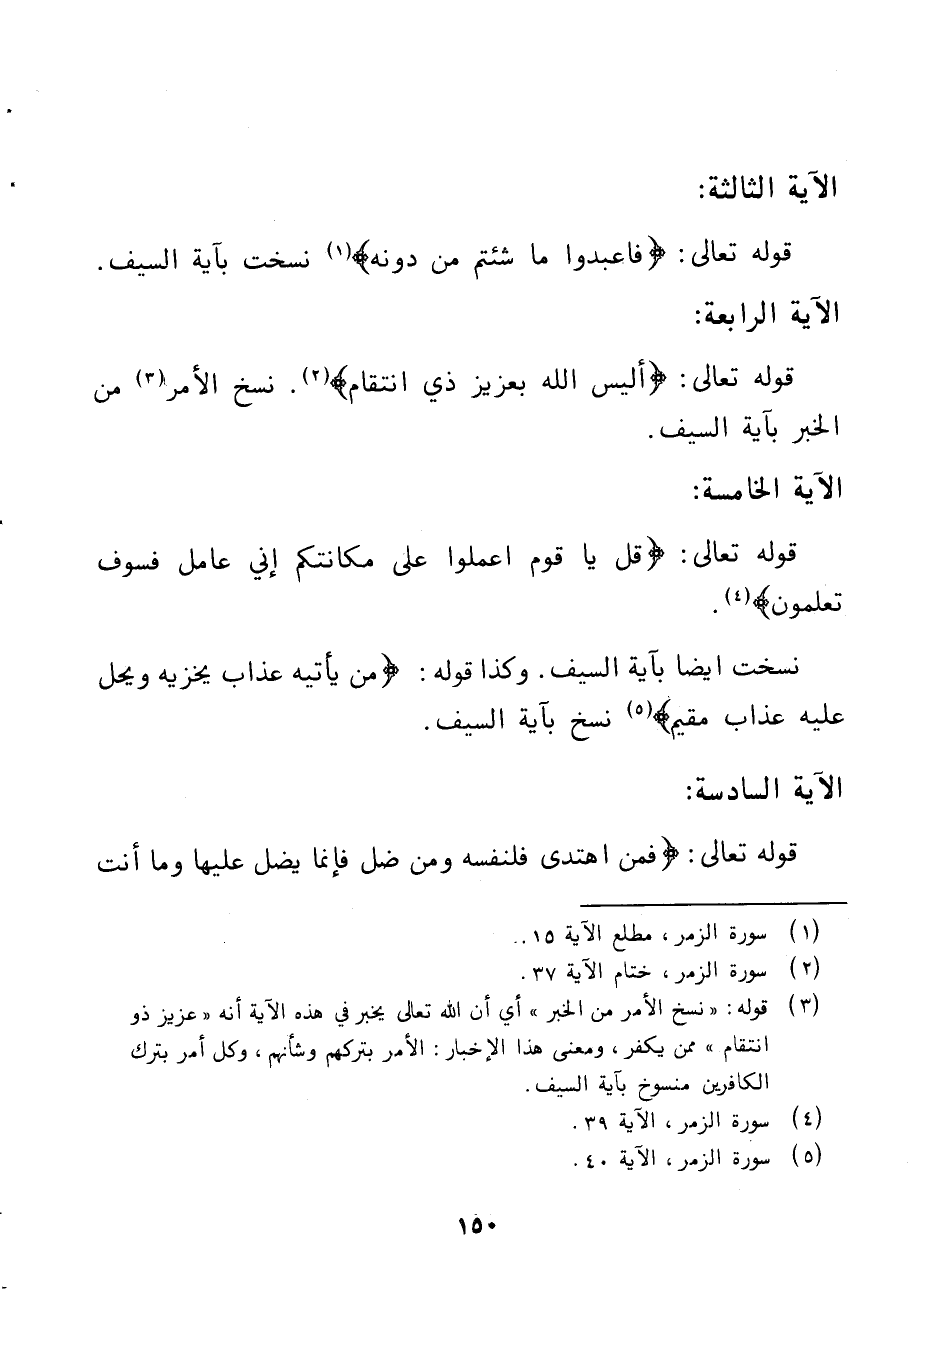 الآية الثالثة:
قوله تعالى: ﴿فاعبدوا ما شئتم من دونه﴾(١) نسخت بآية السيف.
الآية الرابعة:
قوله تعالى: ﴿أليس الله بعزيز ذي انتقام﴾(٢). نسخ الأمر(٣) من
الخبر بآية السيف.
الآية الخامسة:
قوله تعالى: ﴿قل يا قوم اعملوا على مكانتكم إني عامل فسوف
تعلمون﴾(٤).
نسخت ايضا بآية السيف. وكذا قوله: ﴿من يأتيه عذاب يخزيه ويحل
عليه عذاب مقيم﴾(٥) نسخ بآية السيف.
الآية السادسة:
قوله تعالى: ﴿فمن اهتدى فلنفسه ومن ضل فإنما يضل عليها وما أنت
(١) سورة الزمر، مطلع الآية ١٥..
(٢) سورة الزمر، ختام الآية ٣٧.
(٣) قوله: «نسخ الأمر من الخبر» أي أن الله تعالى يخبر في هذه الآية أنه «عزيز ذو
انتقام» ممن يكفر، ومعنى هذا الإخبار: الأمر بتركهم وشأنهم، وكل أمر بترك
الكافرين منسوخ بآية السيف.
(٤) سورة الزمر، الآية ٣٩.
(٥) سورة الزمر، الآية ٤٠.
١٥٠